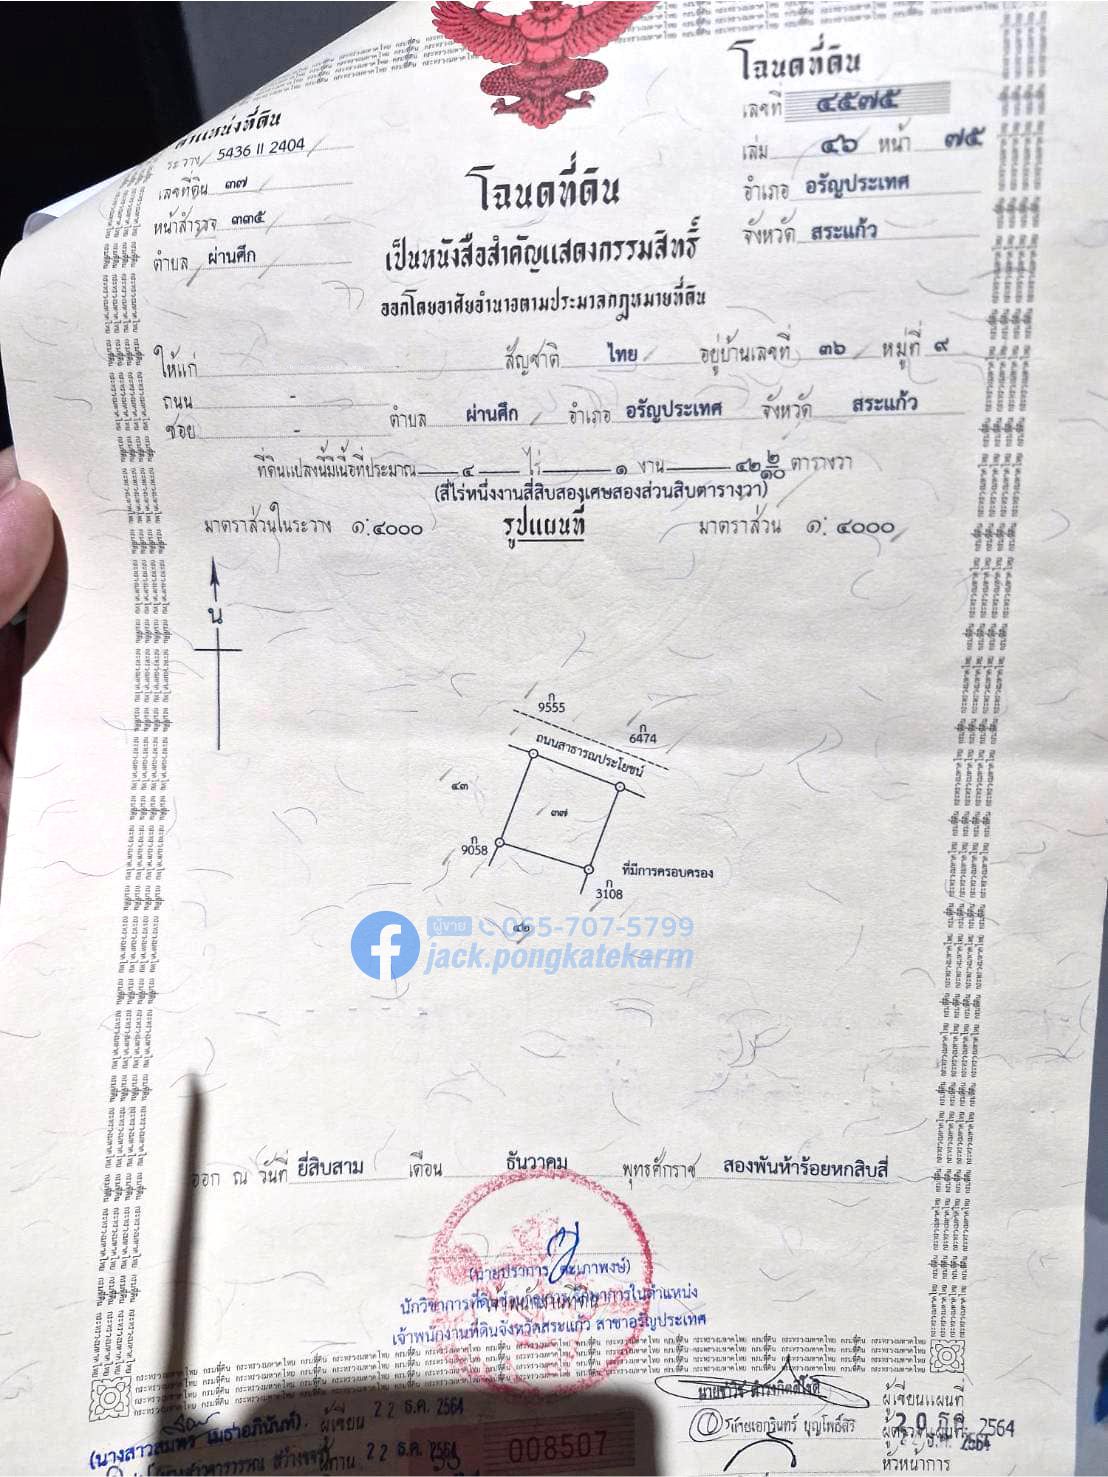 โฉนดที่ดิน
เลขที่ ๔๕๗๕
เล่ม ๔๖ หน้า ๗๕
อำเภอ อรัญประเทศ
จังหวัด สระแก้ว
ตำแหน่งที่ดิน
ระวาง 5436 II 2404
เลขที่ดิน ๓๗
หน้าสำรวจ ๓๓๕
ตำบล ผ่านศึก
โฉนดที่ดิน
เป็นหนังสือสำคัญแสดงกรรมสิทธิ์
ออกโดยอาศัยอำนาจตามประมวลกฎหมายที่ดิน
ให้แก่ สัญชาติ ไทย อยู่บ้านเลขที่ ๓๖ หมู่ที่ ๙
ถนน -
ซอย - ตำบล ผ่านศึก อำเภอ อรัญประเทศ จังหวัด สระแก้ว
ที่ดินแปลงนี้มีเนื้อที่ประมาณ ๔ ไร่ ๑ งาน ๔๒ ๒/๑๐ ตารางวา
(สี่ไร่หนึ่งงานสี่สิบสองเศษสองส่วนสิบตารางวา)
มาตราส่วนในระวาง ๑:๔๐๐๐ รูปแผนที่ มาตราส่วน ๑:๔๐๐๐
น
ก
9555
ก
6474
ถนนสาธารณประโยชน์
๔๓
๓๗
ก
9058
ที่มีการครอบครอง
ก
3108
๔๒
ผู้ขาย 065-707-5799
jack.pongkatekarm
ออก ณ วันที่ ยี่สิบสาม เดือน ธันวาคม พุทธศักราช สองพันห้าร้อยหกสิบสี่
เจ้าพนักงานที่ดินจังหวัดสระแก้ว สาขาอรัญประเทศ
ผู้เขียนแผนที่
ผู้เขียน 22 ธ.ค. 2564
22 ธ.ค. 2564
008507
หัวหน้าการ